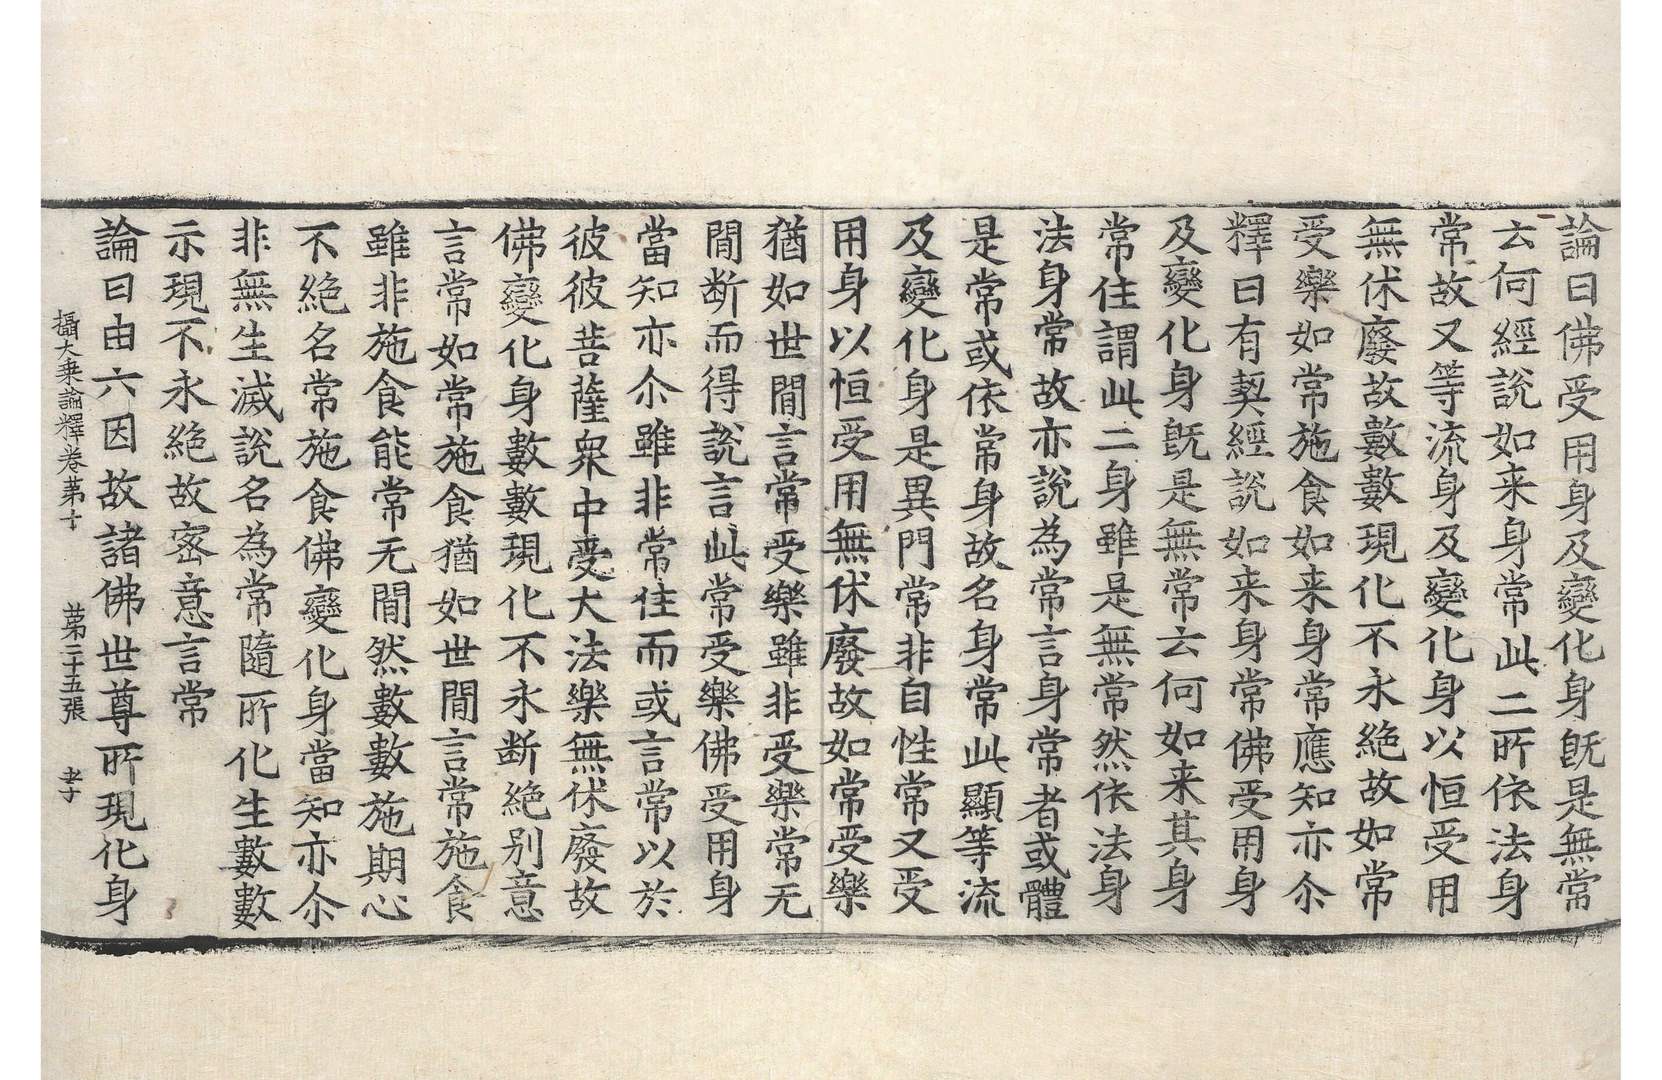 論曰佛受用身及變化身旣是無常
云何經說如来身常此二所依法身
常故又等流身及變化身以恒受用
無休廢故數數現化不永絶故如常
受樂如常施食如来身常應知亦尒
釋曰有契經說如来身常佛受用身
及變化身旣是無常云何如来其身
常住謂此二身雖是無常然依法身
法身常故亦說為常言身常者或體
是常或依常身故名身常此顯等流
及變化身是異門常非自性常又受
用身以恒受用無休廢故如常受樂
猶如世間言常受樂雖非受樂常无
間断而得說言此常受樂佛受用身
當知亦尒雖非常住而或言常以於
彼彼菩薩衆中受大法樂無休廢故
佛變化身數數現化不永断絶別意
言常如常施食猶如世間言常施食
雖非施食能常无間然數數施期心
不絶名常施食佛變化身當知亦尒
非無生滅說名為常隨所化生數數
示現不永絶故密意言常
論曰由六因故諸佛世尊所現化身
攝大乗論釋卷第十 第二十五張